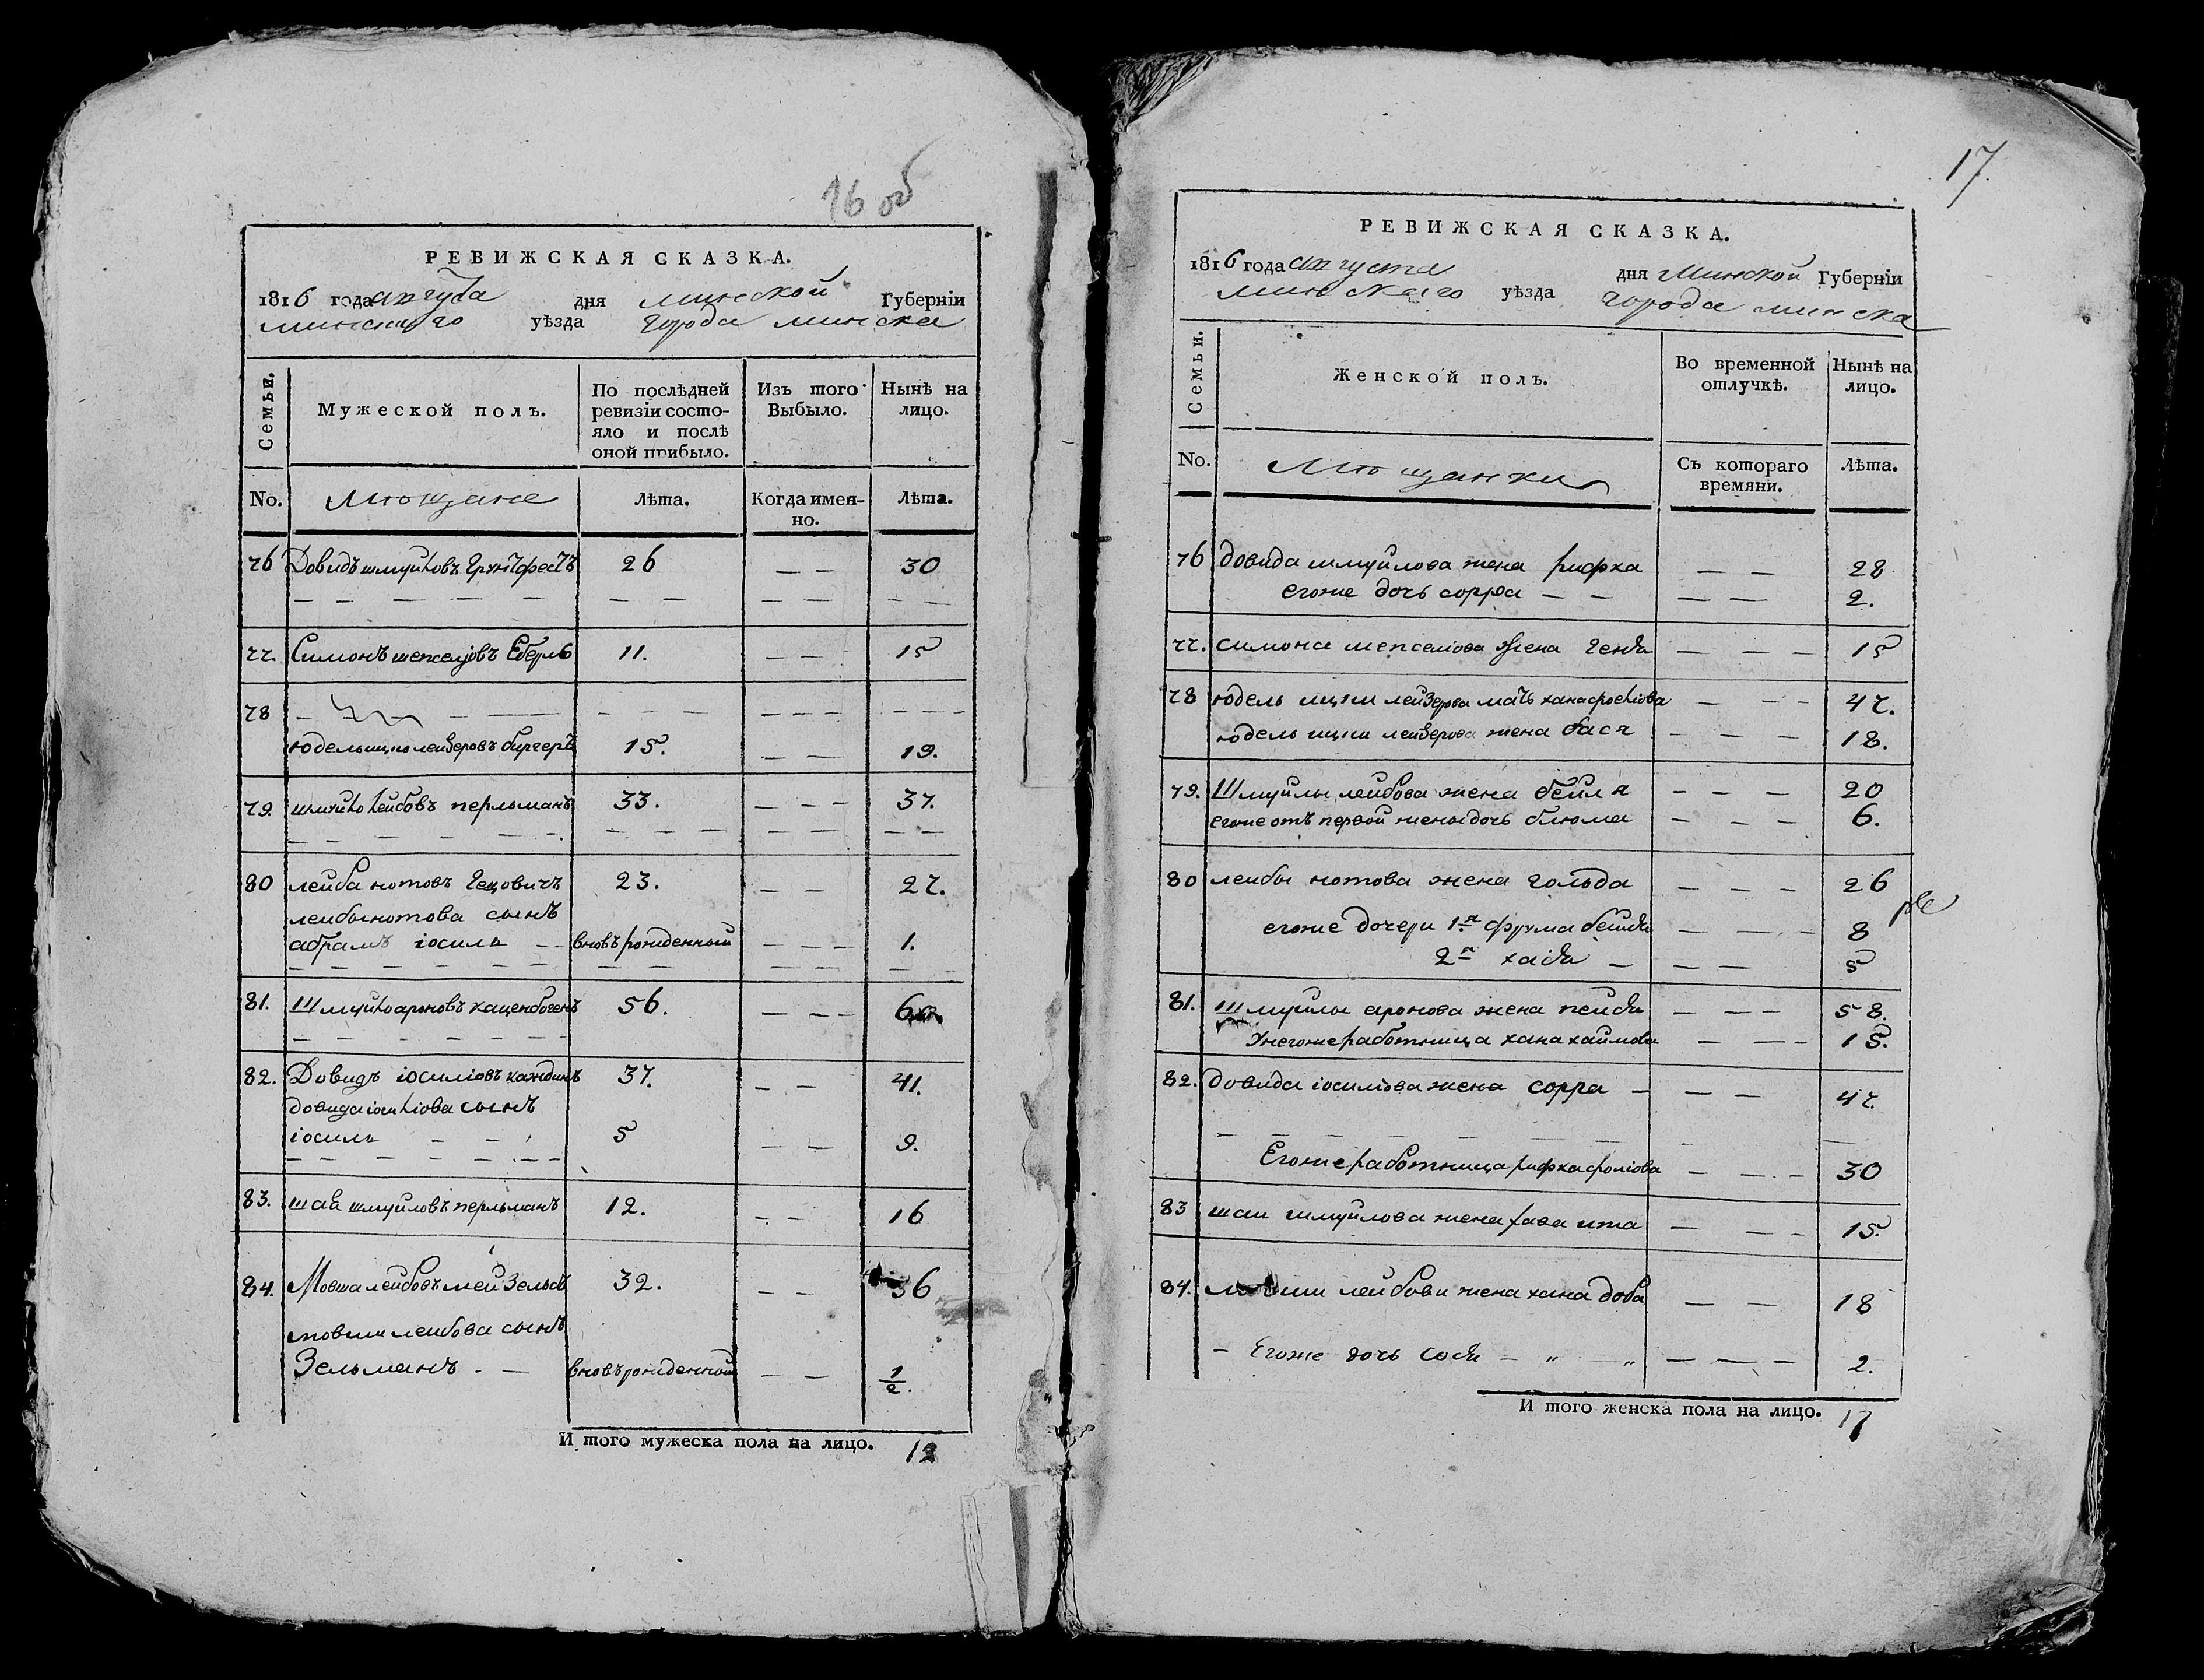 16 об
РЕВИЖСКАЯ СКАЗКА.
1816 года августа дня минской Губерніи
минского уѣзда города минска
Семьи. Мужеской полъ. По послѣдней ревизіи состояло и послѣ оной прибыло. Изъ того Выбыло. Нынѣ на лицо.
No. Мѣщане Лѣта. Когда именно. Лѣта.
76 Довидъ шмуйловъ 26 — — 30
77. Симонъ шепселіовъ 11. — — 15
78 — — — —
юдель ицко лейзеровъ биргеръ 15. — — 19.
79. шмуйло лейбовъ перльманъ 33. — — — 37.
80 лейба нотовъ Гецовичъ 23. — — 27.
лейбы нотова сынъ
абрамъ іосиль — — вновь рожденный — — — 1.
81. Шмуйло ароновъ каценбогенъ 56. — — — 60
82. Довидъ іосиліовъ каждинъ 37. — — 41.
довида іосиліова сынъ
іосиль — — 5 — — 9.
83. шая шмуйловъ перльманъ 12. — — 16
84. Мовша лейбовъ мейзельсъ 32. — — 36
мовши лейбова сынъ
Зельманъ — вновь рожденной — — 1/2.
И того мужеска пола на лицо. 12
17.
РЕВИЖСКАЯ СКАЗКА.
1816 года августа дня Минской Губерніи
минскаго уѣзда города минска
Семьи. Женской полъ. Во временной отлучкѣ. Нынѣ на лицо.
No. Мѣщанки Съ котораго времяни. Лѣта.
76 довида шмуйлова жена рифка — — 28
егоже дочь сорра — — — — 2.
77. симона шепселіова жена Генда — — — 15
78 юдель ицки лейзерова мать хана — — — 47.
юдель ицки лейзерова жена бася — — — 18.
79. Шмуйлы лейбова жена бейля — — — 20
егоже отъ первой жены дочь блюма — — — 6.
80 лейбы нотова жена гольда — — — 26
егоже дочери 1я фрума бейля — — — 8
2я хася — — — 5
81. Шмуйлы аронова жена пейся — — — 58.
У негоже работница хана хаймова — — — 15.
82. довида іосиліова жена сорра — — — 47.
Егоже работница рифка — — — 30
83 шаи шмуйлова жена хава ита — — — 15.
84. мовши лейбова жена хана доба — — 18
— Егоже дочь сося — „ — „ — — — 2.
И того женска пола на лицо. 17